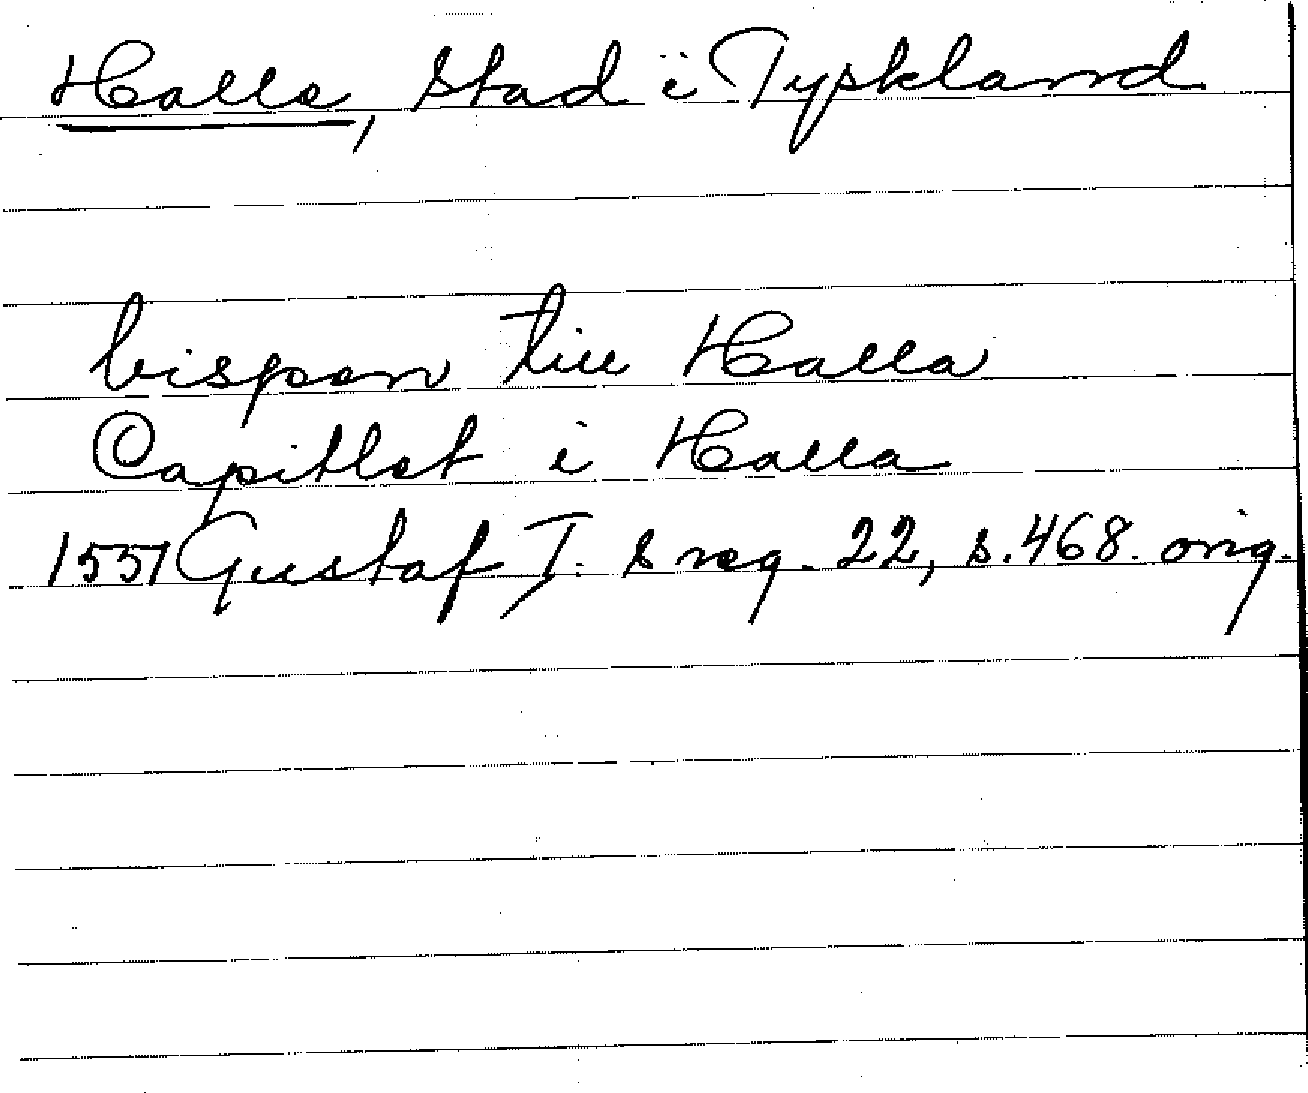 Halle, stad i Tyskland
bispen till Halla
Capitlet i Halla
1551 Gustaf I:s reg. 22, s. 468. orig.